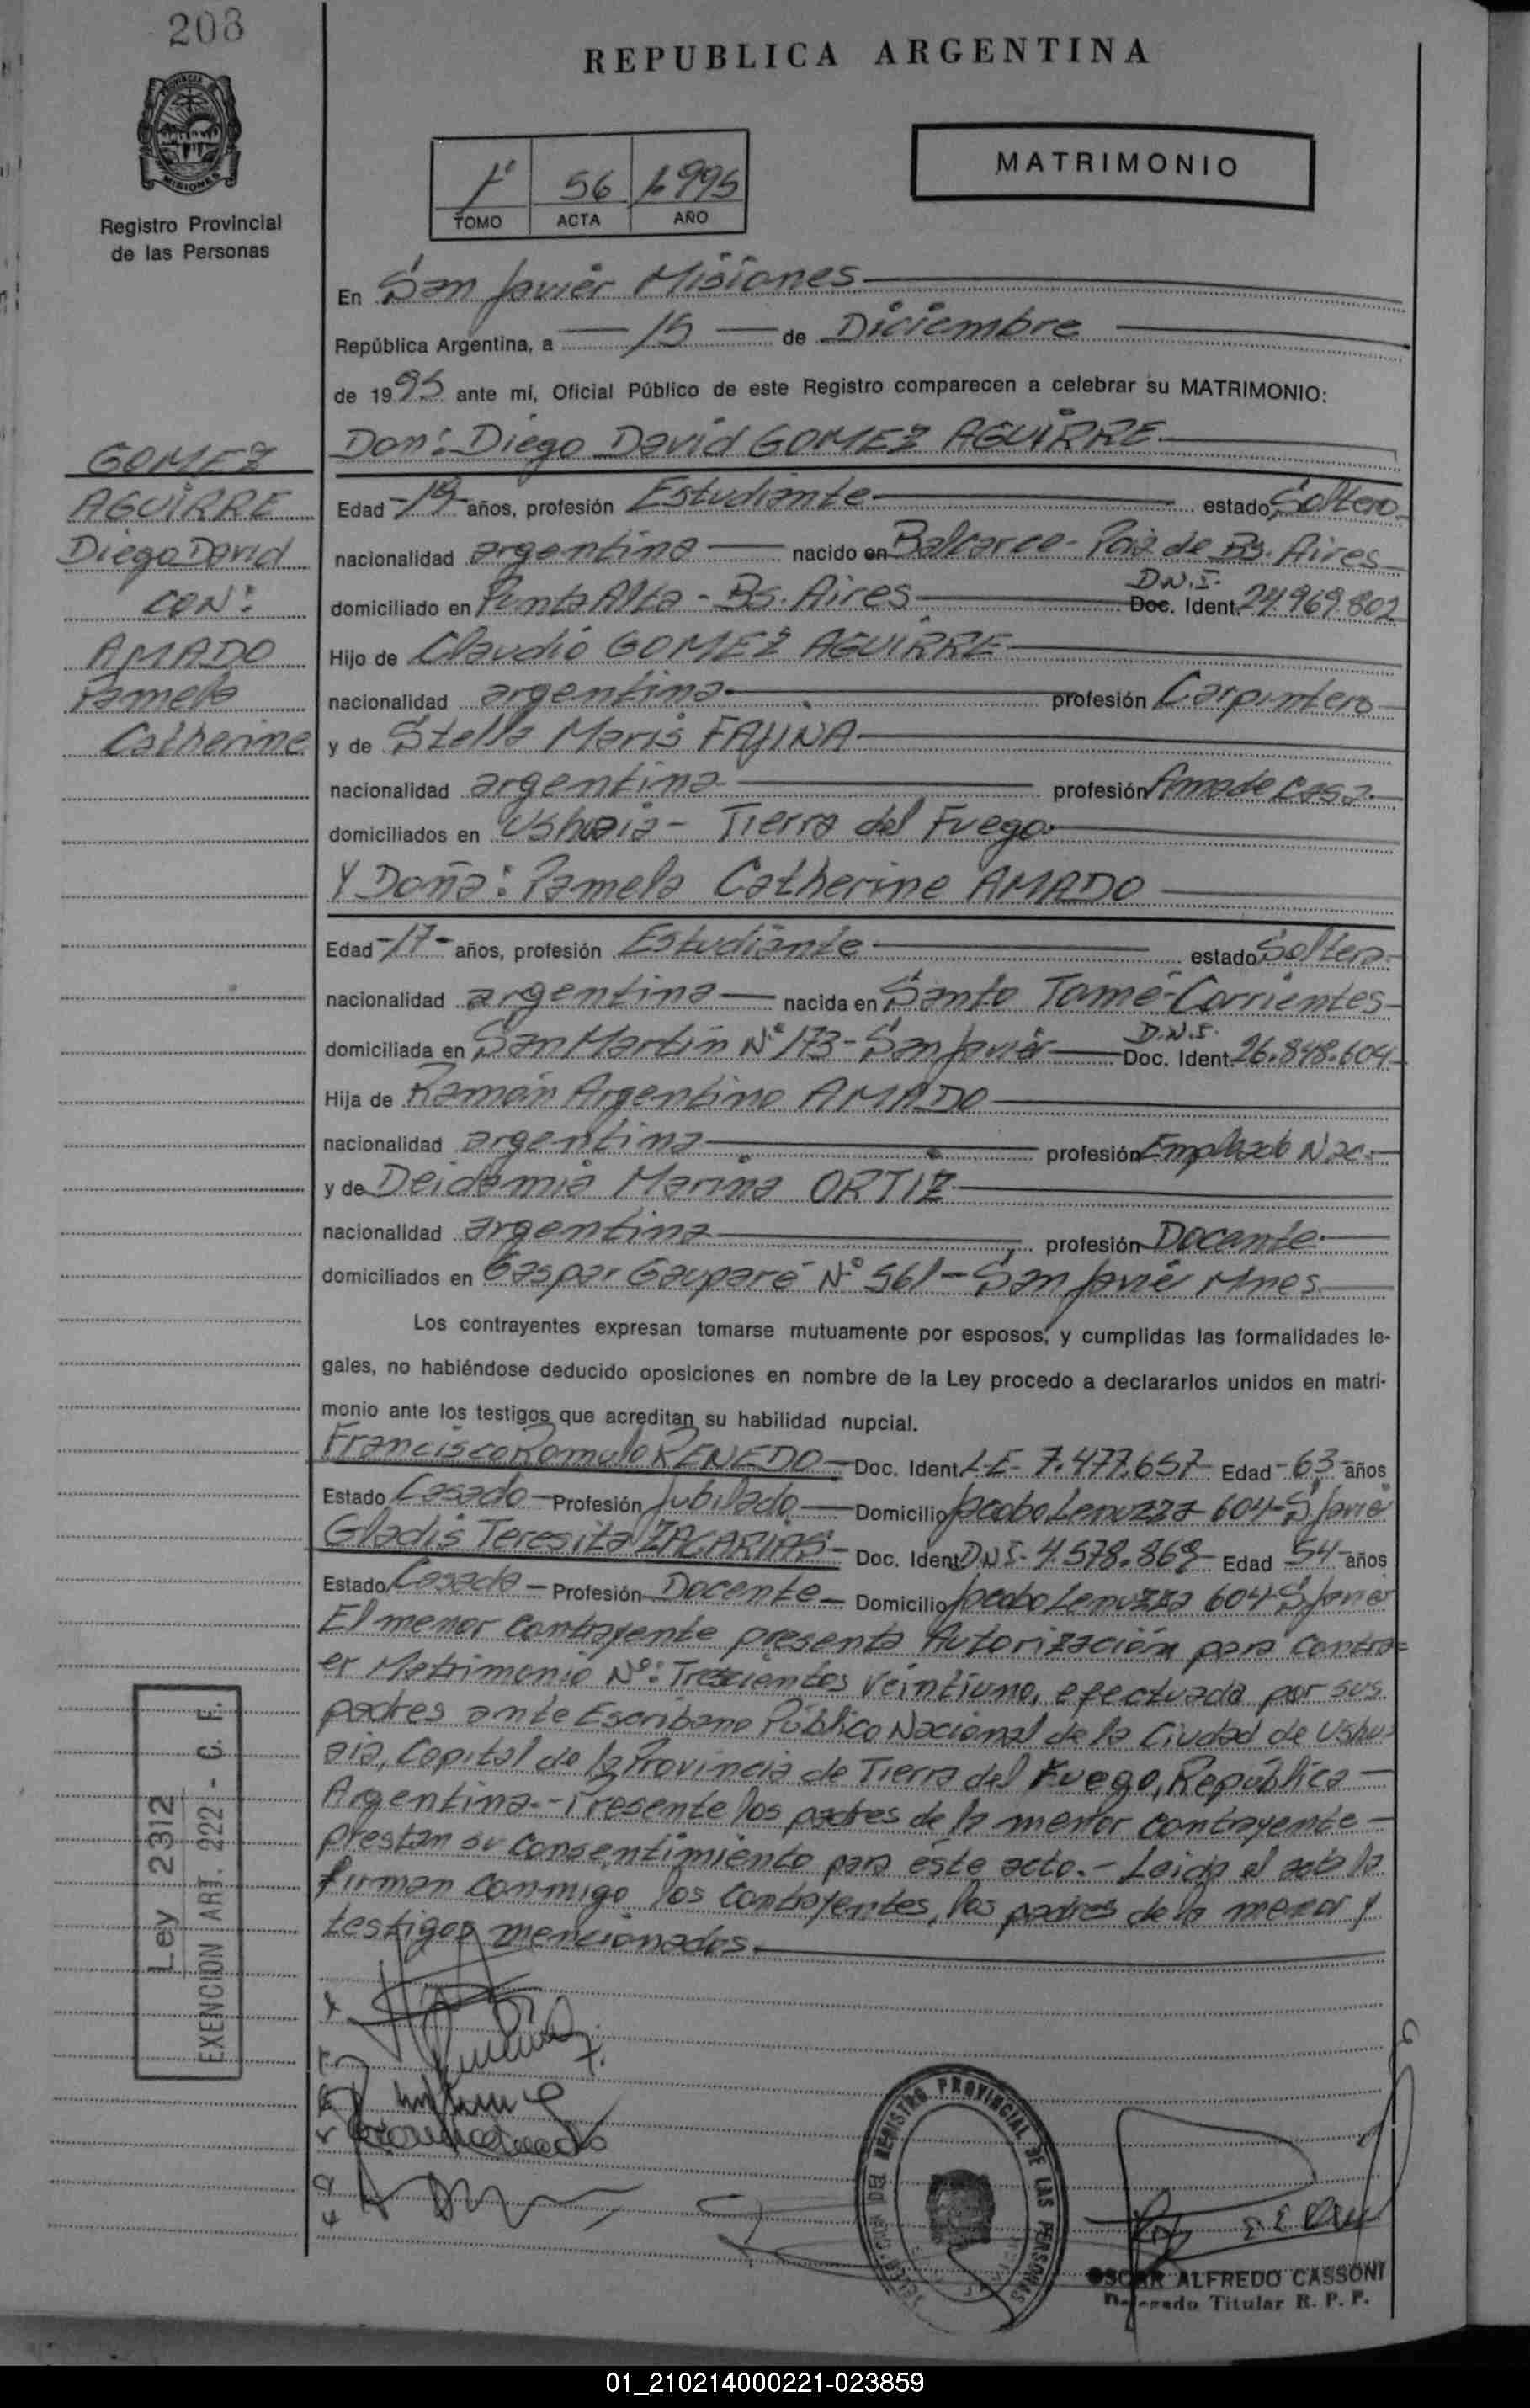 208
REPUBLICA ARGENTINA
MISIONES
Registro Provincial
de las Personas
1º 56 1.995
TOMO ACTA AÑO
MATRIMONIO
En San Javier Misiones
República Argentina, a 15 de Diciembre
de 1995 ante mí, Oficial Público de este Registro comparecen a celebrar su MATRIMONIO:
Don: Diego David GOMEZ AGUIRRE
GOMEZ
AGUIRRE
Diego David
CON:
AMADO
Pamela
Catherine
Edad -19- años, profesión Estudiante estado Soltero
nacionalidad argentina nacido en Balcarce- Pcia de Bs. Aires
domiciliado en Punta Alta - Bs. Aires D.N.I. Doc. Ident. 24.969.802
Hijo de Claudio GOMEZ AGUIRRE
nacionalidad argentina profesión Carpintero
y de Stella Maris
nacionalidad argentina profesión Ama de Casa.
domiciliados en Ushuaia - Tierra del Fuego.
Y Doña: Pamela Catherine AMADO
Edad -17- años, profesión Estudiante estado Soltera
nacionalidad argentina nacida en Santo Tomé-Corrientes
domiciliada en San Martín Nº 173- San Javier D.N.I. Doc. Ident. 26.848.604
Hija de Ramón Argentino AMADO
nacionalidad argentina profesión Empleado Nac.
y de Deidamia Marina ORTIZ
nacionalidad argentina profesión Docente
domiciliados en Gaspar Nº 561- San Javier Mnes
Los contrayentes expresan tomarse mutuamente por esposos, y cumplidas las formalidades le-
gales, no habiéndose deducido oposiciones en nombre de la Ley procedo a declararlos unidos en matri-
monio ante los testigos que acreditan su habilidad nupcial.
Francisco Romulo RENEDO Doc. Ident. L.E- 7.477.657 Edad -63- años
Estado Casado Profesión Jubilado Domicilio Jacobo Lenuzza 604- S Javier
Gladis Teresita ZACARIAS Doc. Ident. DNI- 4.578.869 Edad 54 años
Estado Casada Profesión Docente Domicilio Jacobo Lenuzza 604 S Javier
El menor contrayente presenta Autorización para contra=
er Matrimonio Nº: Trescientos Veintiuno, efectuada por sus
padres ante Escribano Público Nacional de la Ciudad de Ushu-
aia, Capital de la Provincia de Tierra del Fuego, República
Argentina.- Presente los padres de la menor contrayente
prestan su consentimiento para éste acto.- Leida el acta la
firman conmigo los contrayentes, los padres de la menor y
testigos mencionados.
Ley 2312
EXENCION ART. 222 - C. F.
DEL REGISTRO PROVINCIAL DE LAS PERSONAS
OSCAR ALFREDO CASSONI
Delegado Titular R. P. P.
01_210214000221-023859